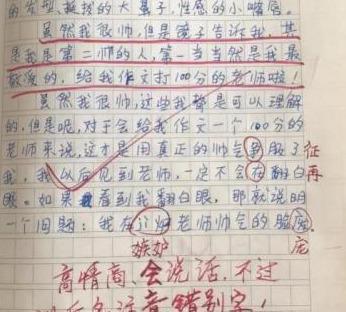 的发型,挺拔的大鼻子,性感的小嘴唇。
虽然我很帅,但是镜子告诉我,其
是我是第二帅的人,第一当当然是我最
敬爱的,给我作文打100分的老师啦!
虽然我很帅,这些我都是可以理解
的,但是呢,对于会给我作文一个100分的
老师来说,这才是用真正的帅气争服了 征
我,我以后见到老师,一定不会在翻白 再
眼。如果看到我翻白眼,那就说明
一个问题:我在 老师帅气的脸
嫉妒 庞
高情商、会说话,不过
以后多注意错别字!